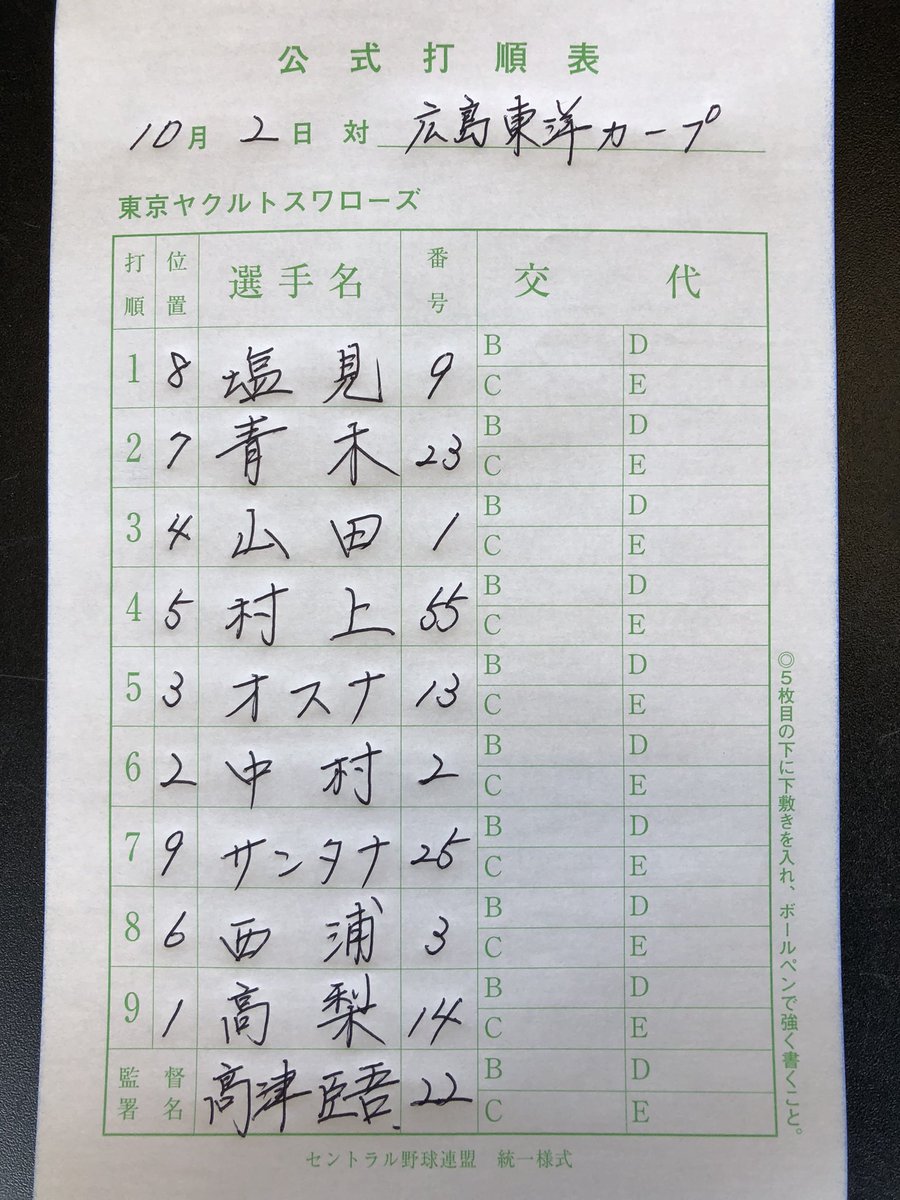 公式打順表
10月2日 対 広島東洋カープ
東京ヤクルトスワローズ
打順 位置 選手名 番号 交代
1 8 塩見 9 B D
C E
2 7 青木 23 B D
C E
3 4 山田 1 B D
C E
4 5 村上 55 B D
C E
5 3 オスナ 13 B D
C E
6 2 中村 2 B D
C E
7 9 サンタナ 25 B D
C E
8 6 西浦 3 B D
C E
9 1 高梨 14 B D
C E
監督署名 高津臣吾 22 B D
C E
◎5枚目の下に下敷きを入れ、ボールペンで強く書くこと。
セントラル野球連盟 統一様式